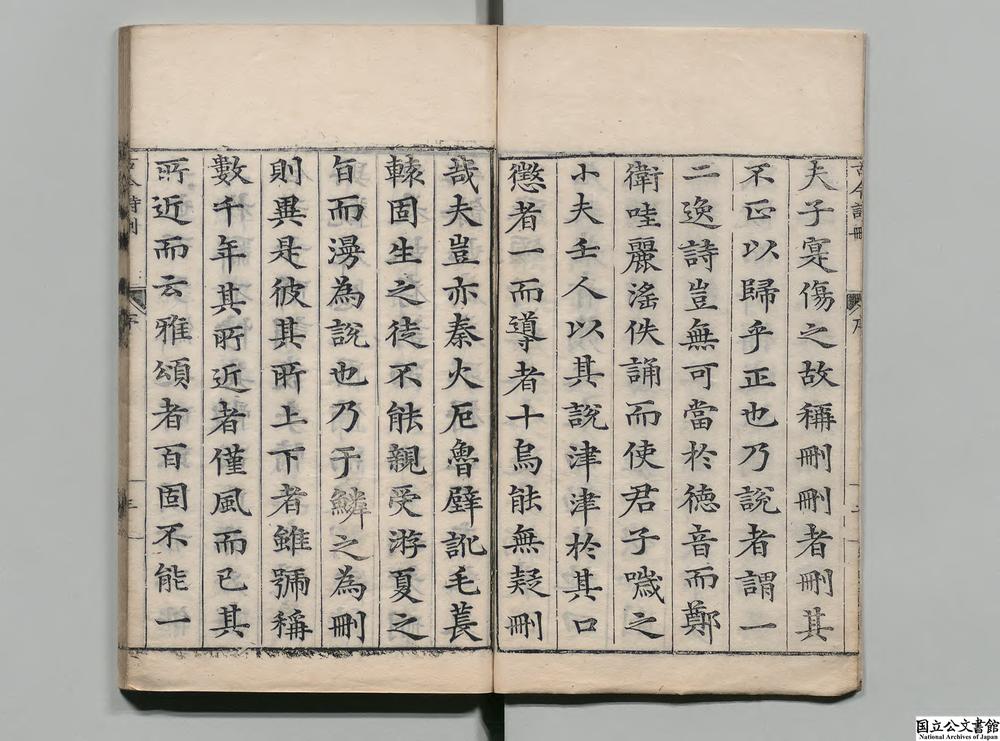 古今詩刪
夫子寔傷之故稱刪刪者刪其
不正以歸乎正也乃說者謂一
二逸詩豈無可當於德音而鄭
衛哇麗滛佚誦而使君子嘅之
小夫壬人以其說津津於其口
懲者一而導者十烏能無疑刪
哉夫豈亦秦火厄魯壁訛毛萇
轅固生之徒不能親受游夏之
旨而漫為說也乃于鱗之為刪
則異是彼其所上下者雖號稱
數千年其所近者僅風而已其
所近而云雅頌者百固不能一
古今詩刪
序
三
国立公文書館
National Archives of Japan